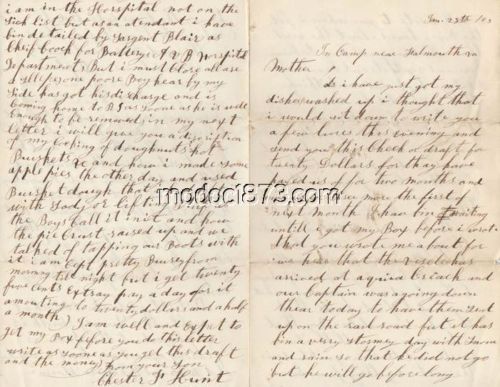 Jan. 25th / 63
In Camp near Falmouth va
Mother
As i have just got my
dishes washed up i thought that
i would sit down to write you
a few lines this evening and
send you this Check or draft for
twenty Dollars for thay have
payed us of for two months and
next month i have ben waiting
untill i got my Box before i wrote
that you wrote me about for
we hear that the
arrived at aquia Creack and
our Captain was agoing down
thear today to have them Put
up on the rail road but it has
ben a very stormy day with Snow
and rain so that he did not go
but he will go before long
i am in the Horspital not on the
Sick list but as an atendant i have
bin detailed by Sargent Blair as
Cheif Coock for Battery
Department But i must Close
one poore Boy hear by my
Side has got his discharge and is
Coming home to as Soone as he is well
Enough to be removed in my next
letter i will give you a discription
of my Cooking of doughnuts pot
&c and how i made some
apple pies the other day and used
dough that
with Sody
the Boys Call it in it and how
the pie Crust raised up and we
talked of tapping our Boots with
it i am Kept pretty Buisy from
morning till night but i get twenty
five cents Extray pay a day for it
amounting to twenty dollars and a half
a month I am well and Expect to
get my Box before you do this letter
write as Soone as you get this draft
and the money from your Son
Chester F Hunt
modoc1873.com